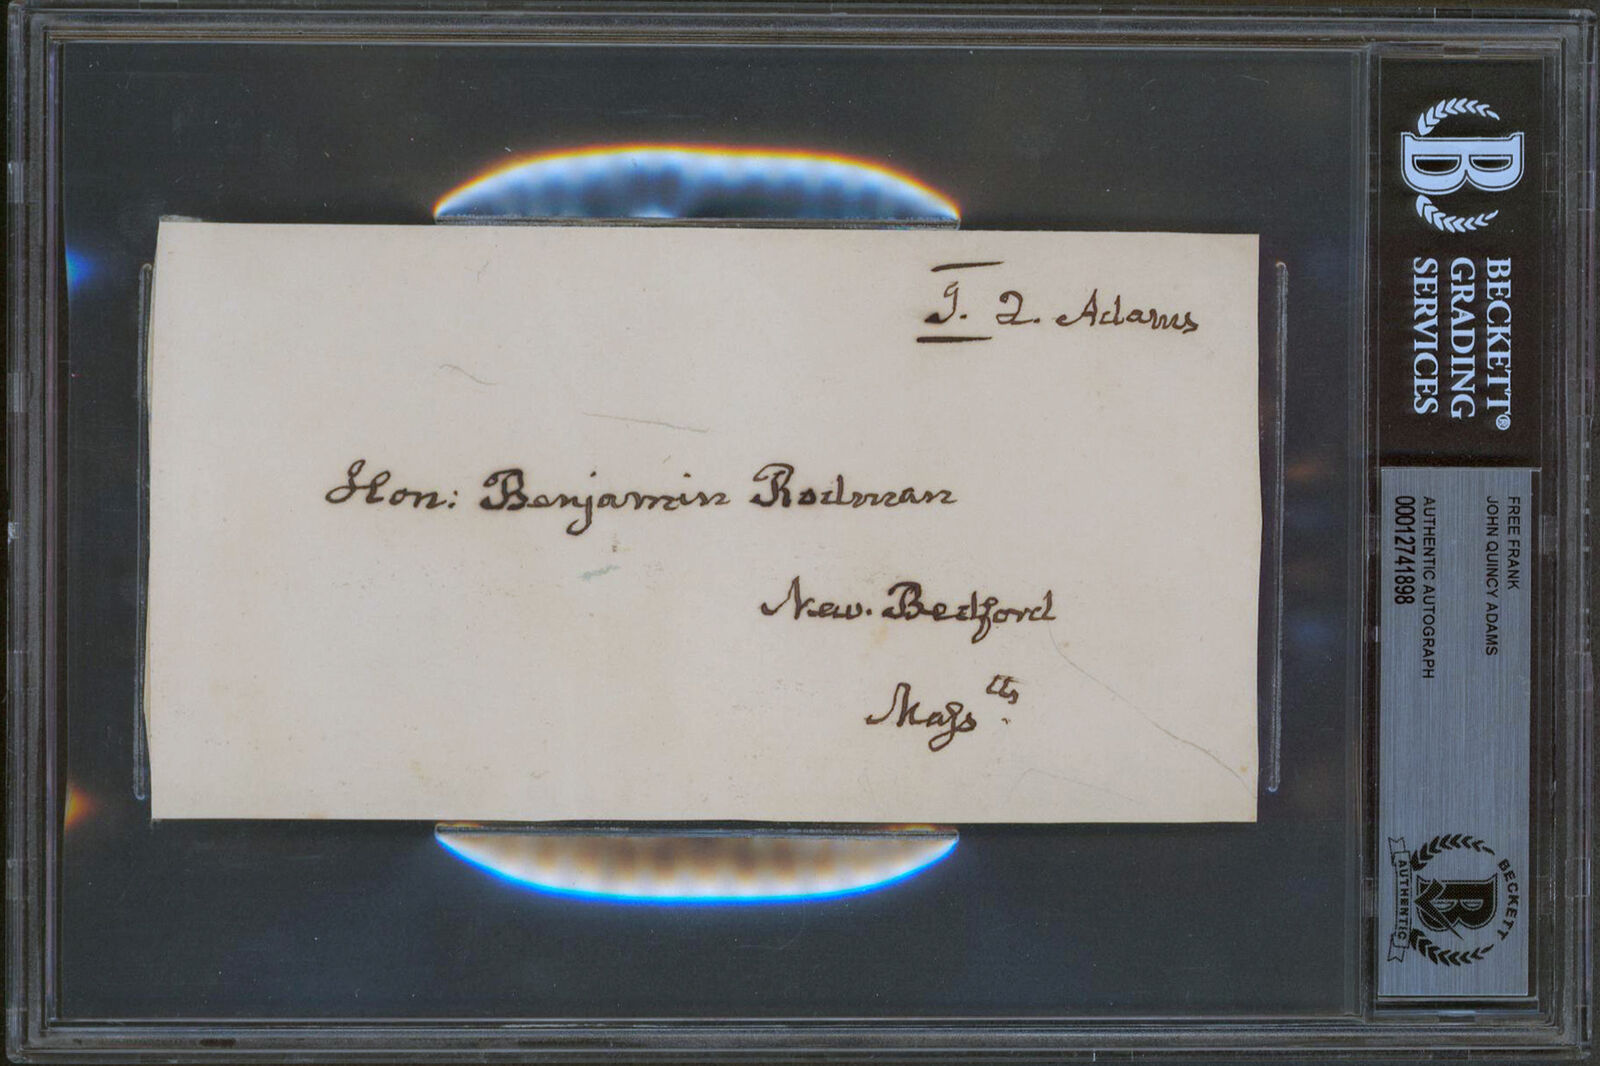 J. Q. Adams
Hon: Benjamin Rodman
New. Bedford
Mass tts.
BECKETT®
GRADING
SERVICES
FREE FRANK
JOHN QUINCY ADAMS
AUTHENTIC AUTOGRAPH
00012741898
BECKETT
AUTHENTIC